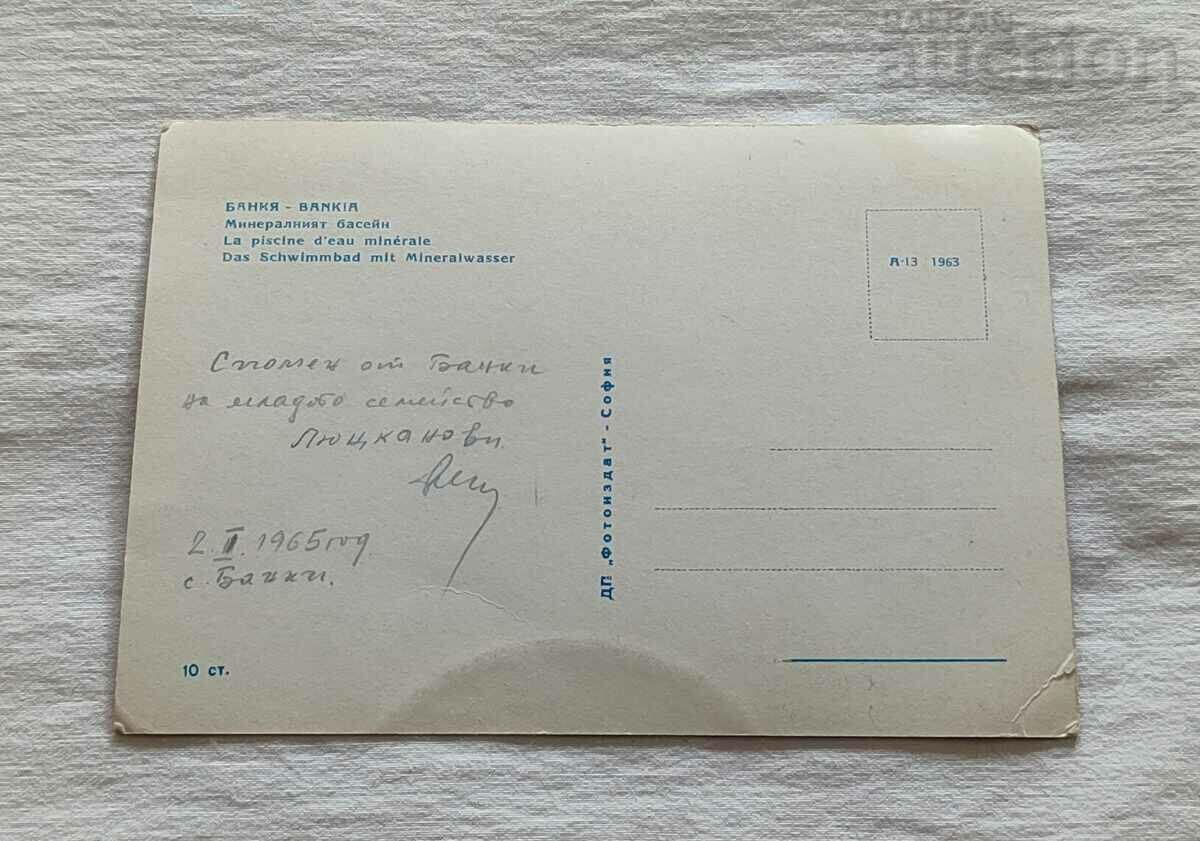 BALKAN
auction
БАНКЯ - BANKIA
Минералният басейн
La piscine d'eau minérale
Das Schwimmbad mit Mineralwasser
A-13 1963
Спомен от Банки
на младото семейство
Люцканови.
2.II.1965 год.
с. Банки.
10 ст.
ДП „Фотоиздат" - София